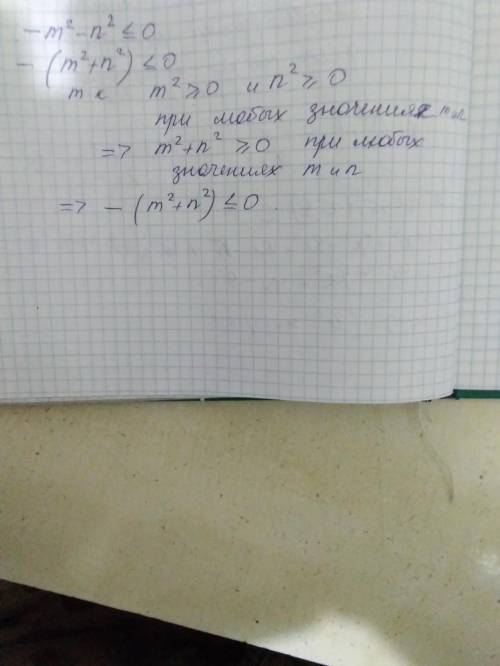 -m²-n² ≤ 0
-(m²+n²) ≤ 0
т к m² ⩾ 0 и n² ⩾ 0
при любых значениях m и n
=> m²+n² ⩾ 0 при любых
значениях m и n
=> -(m²+n²) ≤ 0.